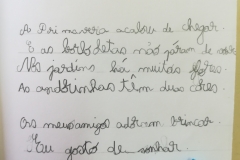 A Primavera acabou de chegar.
E as borboletas não param de voar.
Nos jardins há muitas flores.
As andorinhas têm duas cores.
Os meus amigos adoram brincar.
Eu gosto de sonhar.